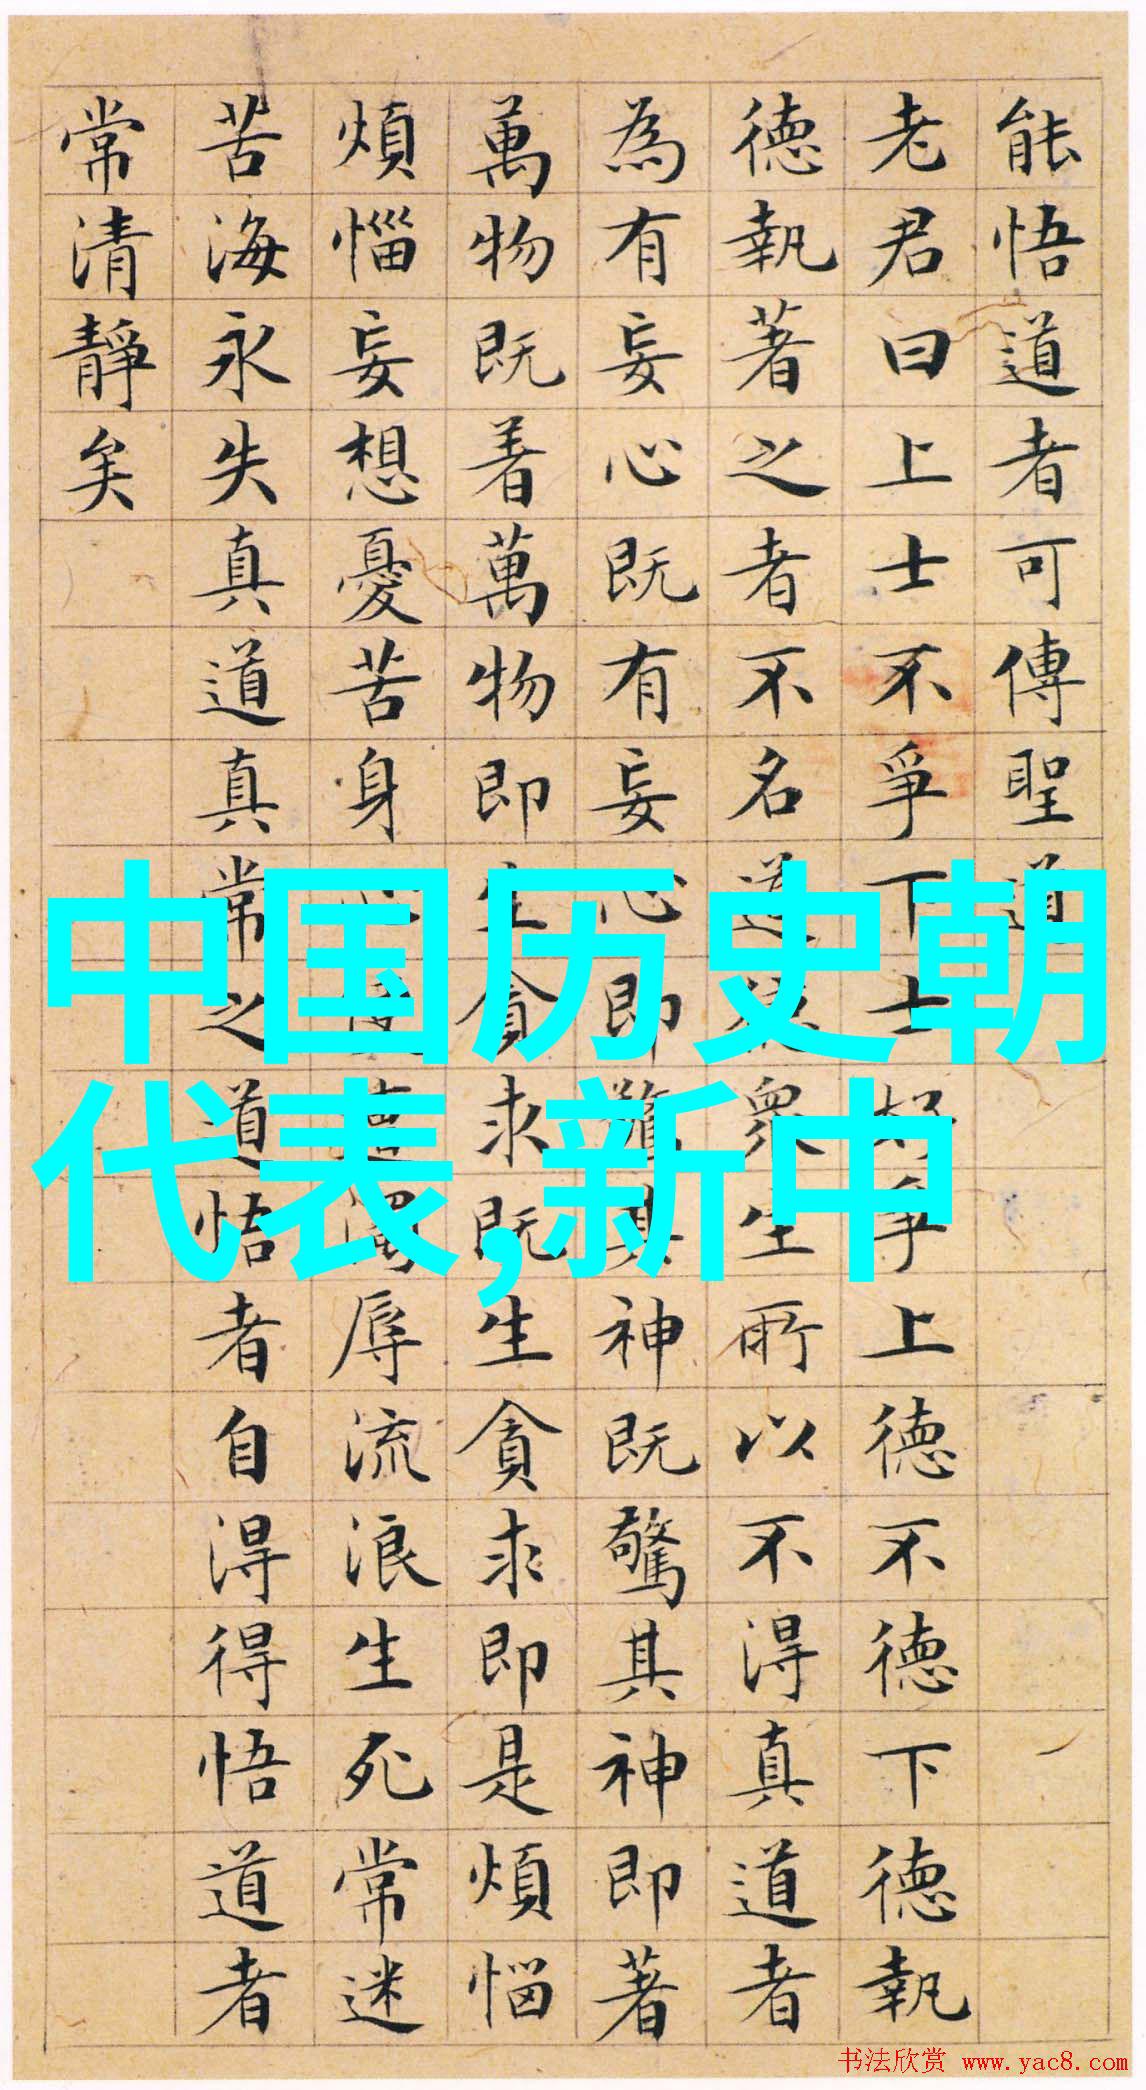 能悟道者可傳聖道
老君曰上士不爭下士好爭上德不德下德執
德執著之者不名道德眾生所以不得真道者
為有妄心既有妄心即驚其神既驚其神即著
萬物既着萬物即生貪求既生貪求即是煩惱
煩惱妄想憂苦身濁辱流浪生死常迷
苦海永失真道真常之道悟者自得得悟道者
常清靜矣
中国历史朝
代表,新中
书法欣赏 www.yac8.com